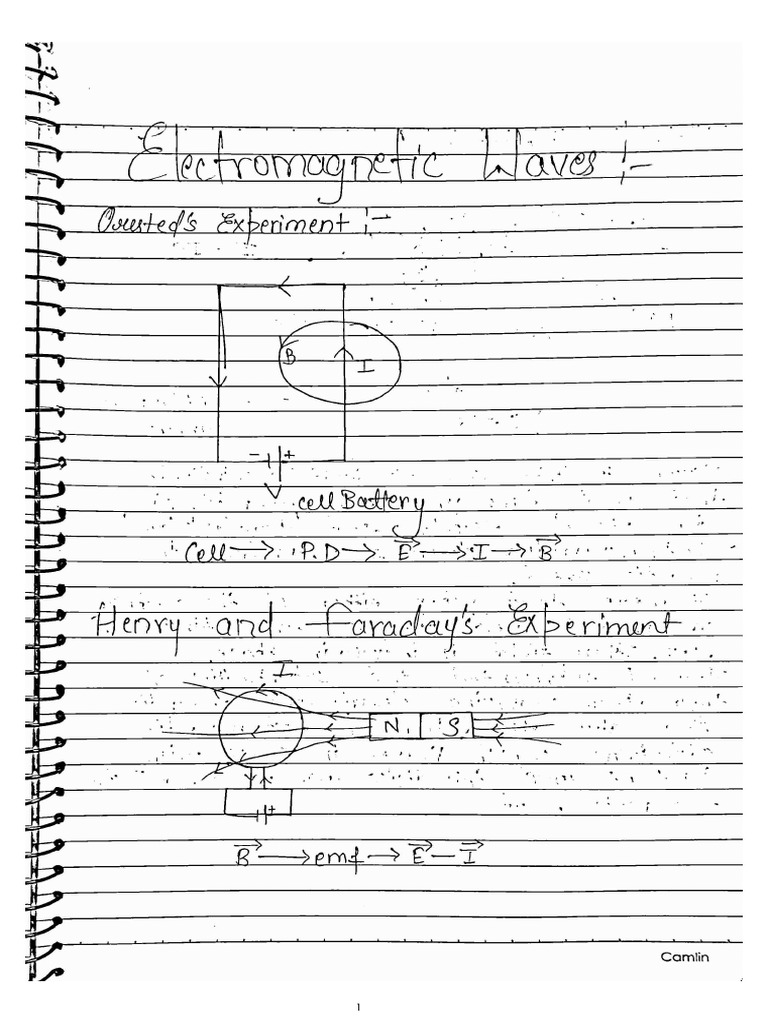 Electromagnetic Waves :-
Orusted's Experiment :-
B I
- +
cell Battery
Cell → P.D → E⃗ → I → B⃗
Henry and Faraday's Experiment
I
N. S.
+
B⃗ → emf → E⃗ — I⃗
Camlin
1